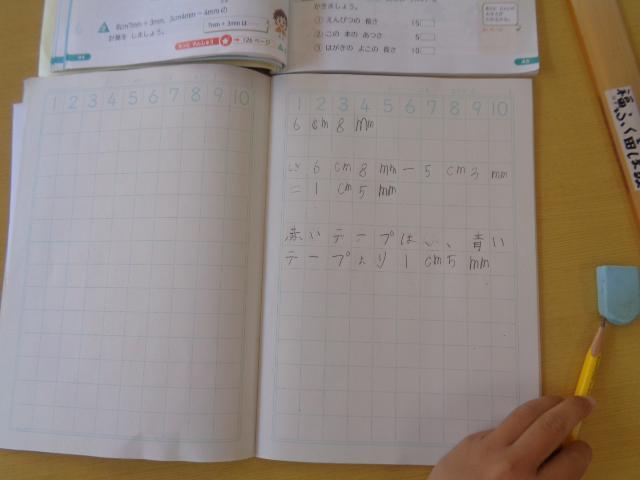 8cm7mm+3mm、3cm4mm-4mmの
計算を しましょう。
7mm+3mmは
126ページ
44
かきましょう。
① えんぴつの 長さ 15
② この 本の あつさ 5
③ はがきの よこの 長さ 10
45
1 2 3 4 5 6 7 8 9 10
1 2 3 4 5 6 7 8 9 10
6 cm 8 mm
6 cm 8 mm - 5 cm 3 mm
= 1 cm 5 mm
赤いテープは、、青い
テープより 1 cm 5 mm